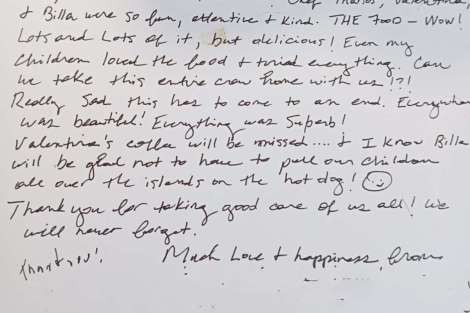 Chef Thasos, Valentina,
& Billa were so fun, attentive & kind. THE FOOD - Wow!
Lots and Lots of it, but delicious! Even my
children loved the food & tried everything. Can
we take this entire crew home with us !?!
Really Sad this has to come to an end. Everywhere
was beautiful! Everything was Superb!
Valentina's colla will be missed.... & I know Billa
will be glad not to have to pull our children
all over the islands on the hot dog!
Thank you for taking good care of us all! We
will never forget.
Much Love & happiness, from